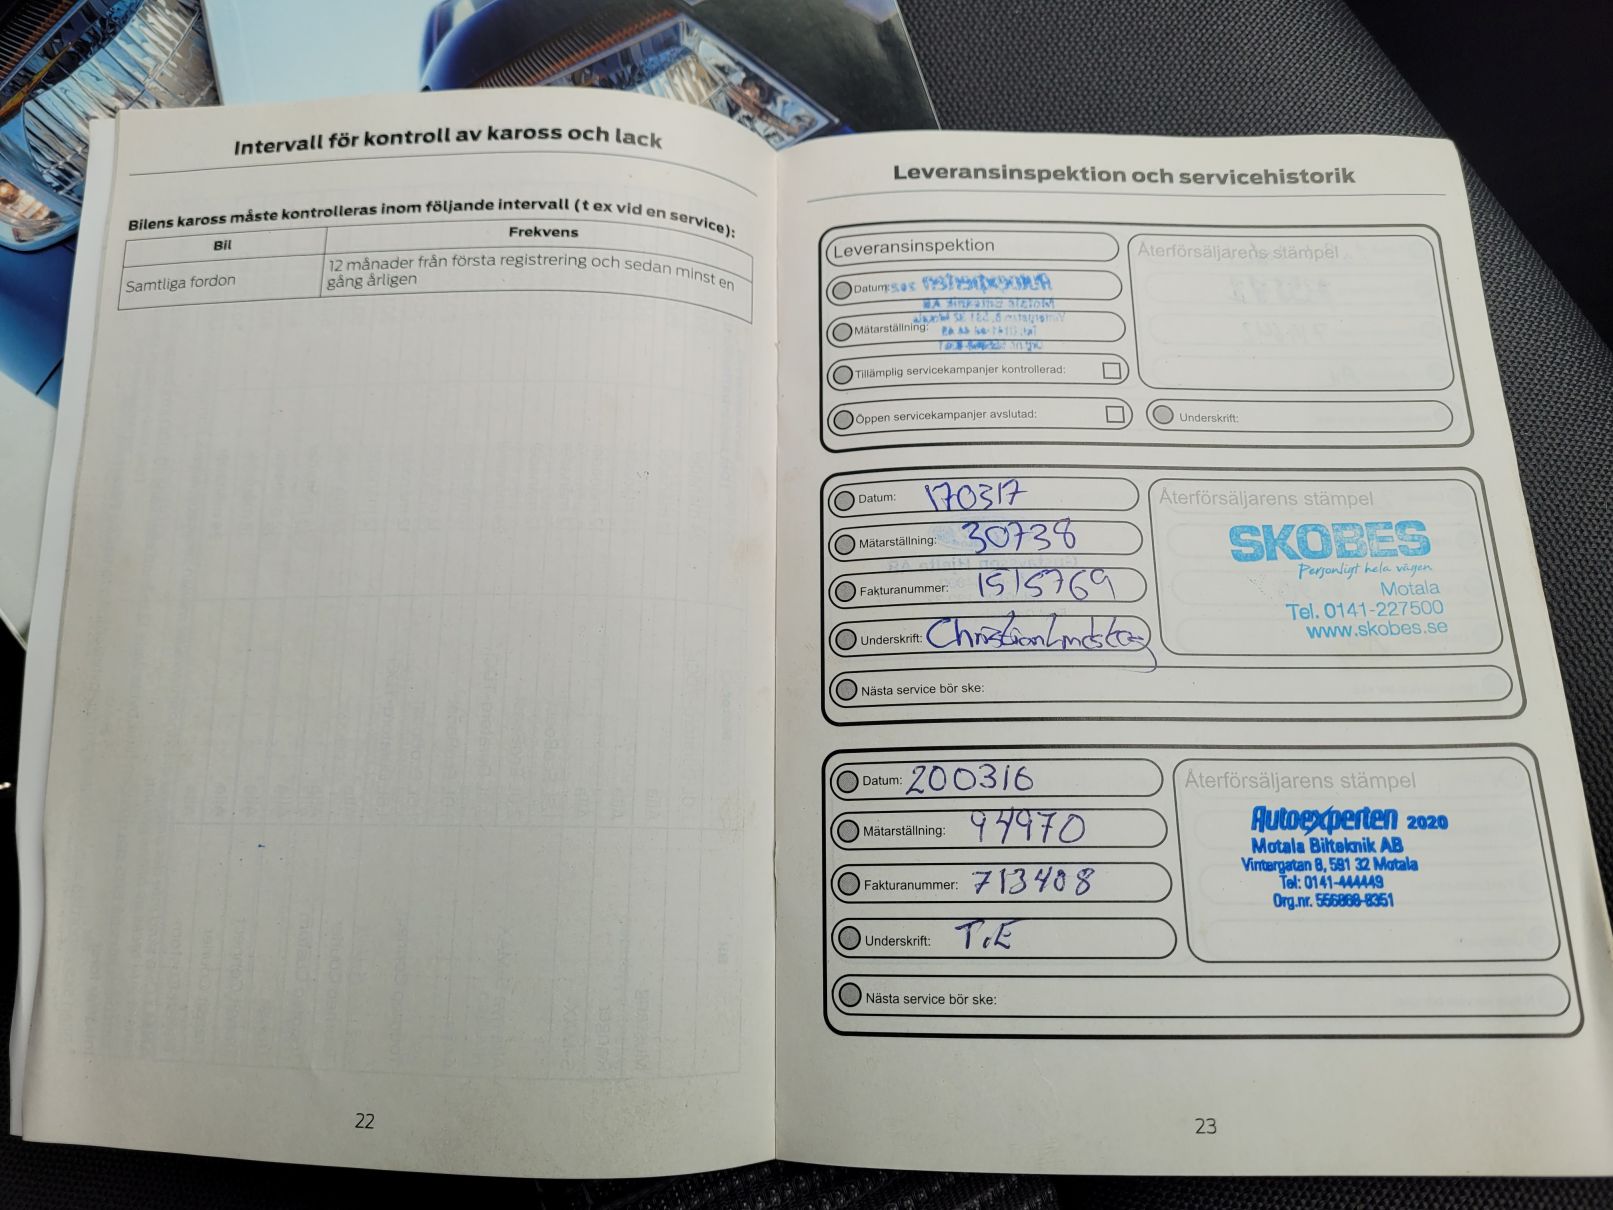 Intervall för kontroll av kaross och lack
Bilens kaross måste kontrolleras inom följande intervall (t ex vid en service):
Bil
Frekvens
Samtliga fordon
12 månader från första registrering och sedan minst en
gång årligen
22
Leveransinspektion och servicehistorik
Leveransinspektion
Återförsäljarens stämpel
Datum:
Mätarställning:
Tillämplig servicekampanjer kontrollerad:
Öppen servicekampanjer avslutad:
Underskrift:
Datum: 170317
Återförsäljarens stämpel
Mätarställning: 30738
Fakturanummer: 1515769
Underskrift: Christian
SKOBES
Personligt hela vägen
Motala
Tel. 0141-227500
www.skobes.se
Nästa service bör ske:
Datum: 200316
Återförsäljarens stämpel
Mätarställning: 94970
Fakturanummer: 713408
Underskrift: T.E
Autoexperten 2020
Motala Bilteknik AB
Vintergatan 8, 591 32 Motala
Tel: 0141-444449
Org.nr.
Nästa service bör ske:
23